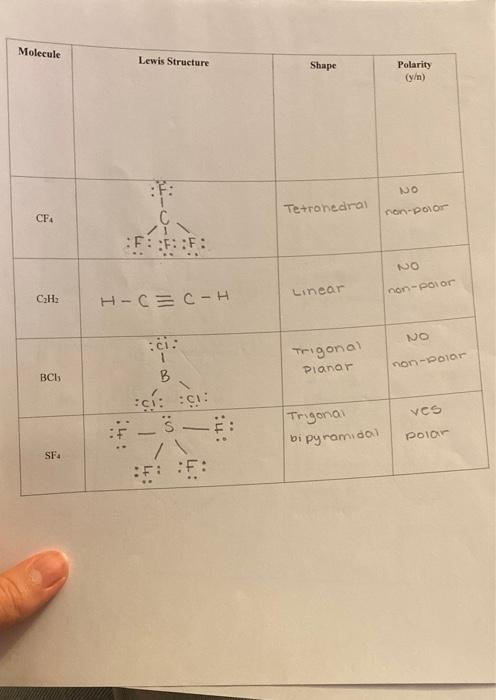 Molecule
Lewis Structure
Shape
Polarity
(y/n)
CF₄
:F:
C
:F: :F: :F:
Tetrahedral
NO
non-polar
C₂H₂
H-C≡C-H
Linear
NO
non-polar
BCl₃
:Cl:
B
:Cl: :Cl:
Trigonal
Planar
NO
non-polar
SF₄
:F — S — F:
:F: :F:
Trigonal
bipyramidal
yes
polar